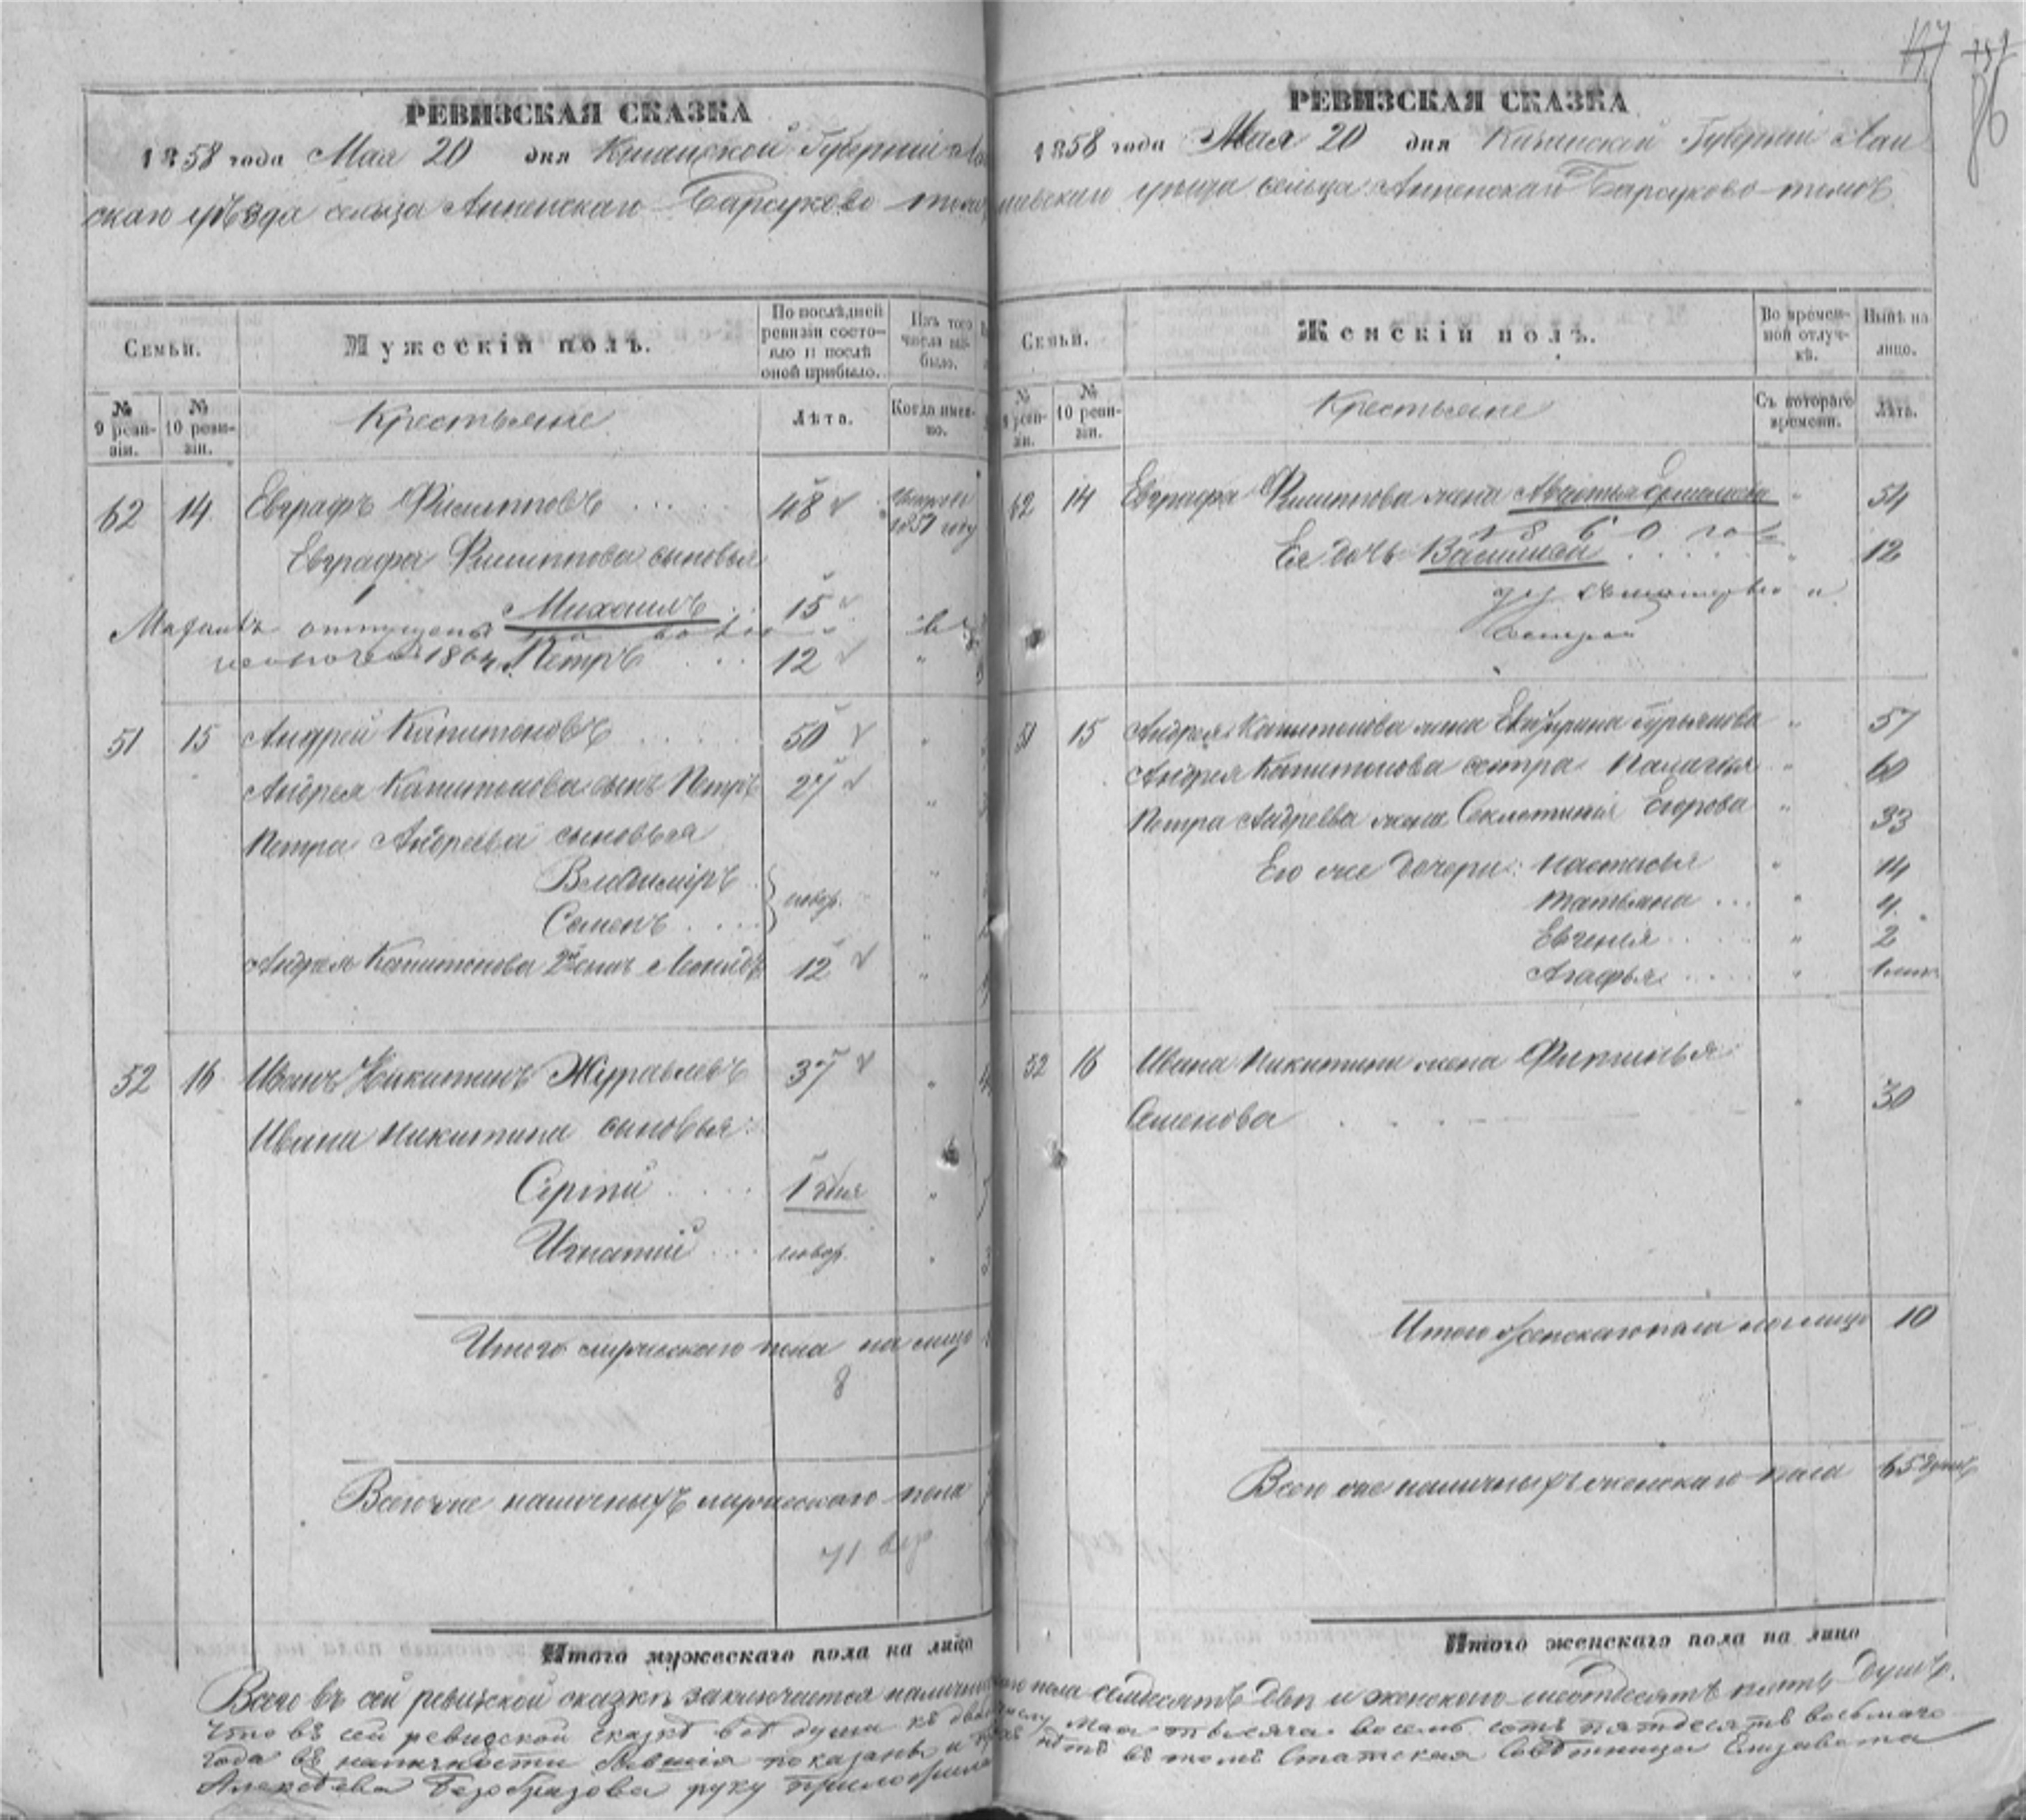 РЕВИЗСКАЯ СКАЗКА
1858 года Мая 20 дня Казанской Губерніи Лаи
скаго уѣзда сельца Анненскаго Барсуково тожъ
Семьи.
Мужескій полъ.
По послѣдней ревизіи состояло и послѣ оной прибыло.
Изъ того числа выбыло.
№ 9 ревизіи.
№ 10 ревизіи.
Крестьяне
Лѣта.
Когда именно.
62 14 Евграфъ Филипповъ 48 1857 году
Евграфа Филиппова сыновья
Михаилъ 15
отпущены
1864 Петръ 12
51 15 Андрей Капитоновъ 50
Андрея Капитонова сынъ Петръ 27
Петра Андреева сыновья
Владиміръ
новор.
Семенъ
Андрея Капитонова 2й сынъ 12
52 16 Иванъ Никитинъ Журавлевъ 37
Ивана Никитина сыновья:
Сергѣй 1 дня
Игнатій новор.
Итого мужескаго пола на лицо
8
Всего же наличныхъ мужескаго пола
71
Итого мужескаго пола на лицо
Всего въ сей ревизской сказкѣ заключается налични
что въ сей ревизской сказкѣ всѣ души къ
года въ наличности бывшія показаны и
Алексѣева Безобразова руку приложила
РЕВИЗСКАЯ СКАЗКА
1858 года Мая 20 дня Казанской Губерніи Лаи
шевскаго уѣзда сельца Анненскаго Барсуково тожъ
Семьи.
Женскій полъ.
Во временной отлучкѣ.
Нынѣ на лицо.
№ 9 ревизіи.
№ 10 ревизіи.
Крестьяне
Съ котораго времени.
Лѣта.
62 14 Евграфа Филиппова жена Авдотья 54
1860 го
Ея дочь 12
51 15 Андрея Капитонова жена Гурьянова 57
Андрея Капитонова сестра Палагея 60
Петра Андреева жена Секлетинія Егорова 33
Его же дочери: Настасья 14
Татьяна 4
Евгенья 2
Агафья
52 16 Ивана Никитина жена Фетинья
Семенова 30
Итого женскаго пола на лицо 10
Всего же наличныхъ женскаго пола 65 душъ
Итого женскаго пола на лицо
го пола семдесятъ две и женскаго шестдесятъ пять душъ.
Мая тысяча восемь сотъ пятдесятъ восьмаго
нѣтъ въ томъ Статская Совѣтница Елизавета